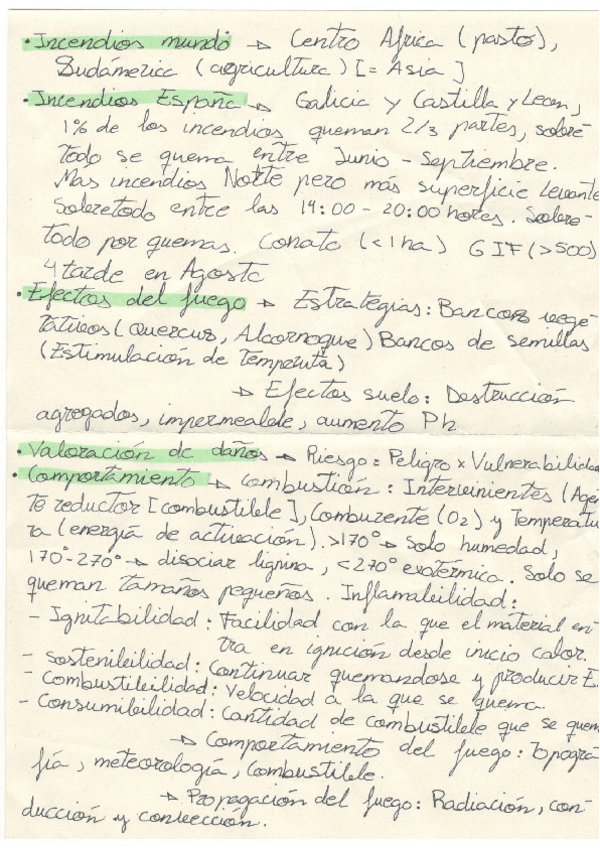 • Incendios mundo → Centro Africa (pastos),
Sudámerica (agricultura) [= Asia]
• Incendios España → Galicia y Castilla y Leon,
1% de los incendios queman 2/3 partes, sobre-
todo se quema entre Junio - Septiembre.
Mas incendios Norte pero más superficie Levante
Sobretodo entre las 14:00 - 20:00 hores. Sobre-
todo por quemas. Conato (<1ha) GIF (>500)
4 tarde en Agosto
• Efectos del fuego → Estrategias: Bancos vege-
tativos (Quercus, Alcornoque) Bancos de semillas
(Estimulación de Temperuta)
→ Efectos suelo: Destrucción
agregados, impermeable, aumento Ph
• Valoración de daños → Riesgo = Peligro x Vulnerabilidad
• Comportamiento → Combustión: Intervinientes (Agen
te reductor [combustible], Comburente (O2) y Temperatu
ra (energía de activación). >170° → Solo humedad,
170°-270° → disociar lignina, <270° exotérmica. Solo se
queman tamaños pequeños. Inflamabilidad:
- Ignitabilidad: Facilidad con la que el material en-
tra en ignición desde inicio calor.
- Sostenibilidad: Continuar quemandose y producir E.
- Combustibilidad: Velocidad a la que se quema.
- Consumibilidad: Cantidad de combustible que se quem
→ Comportamiento del fuego: Topogra
fía, meteorología, Combustible.
→ Propagación del fuego: Radiación, con-
ducción y convección.